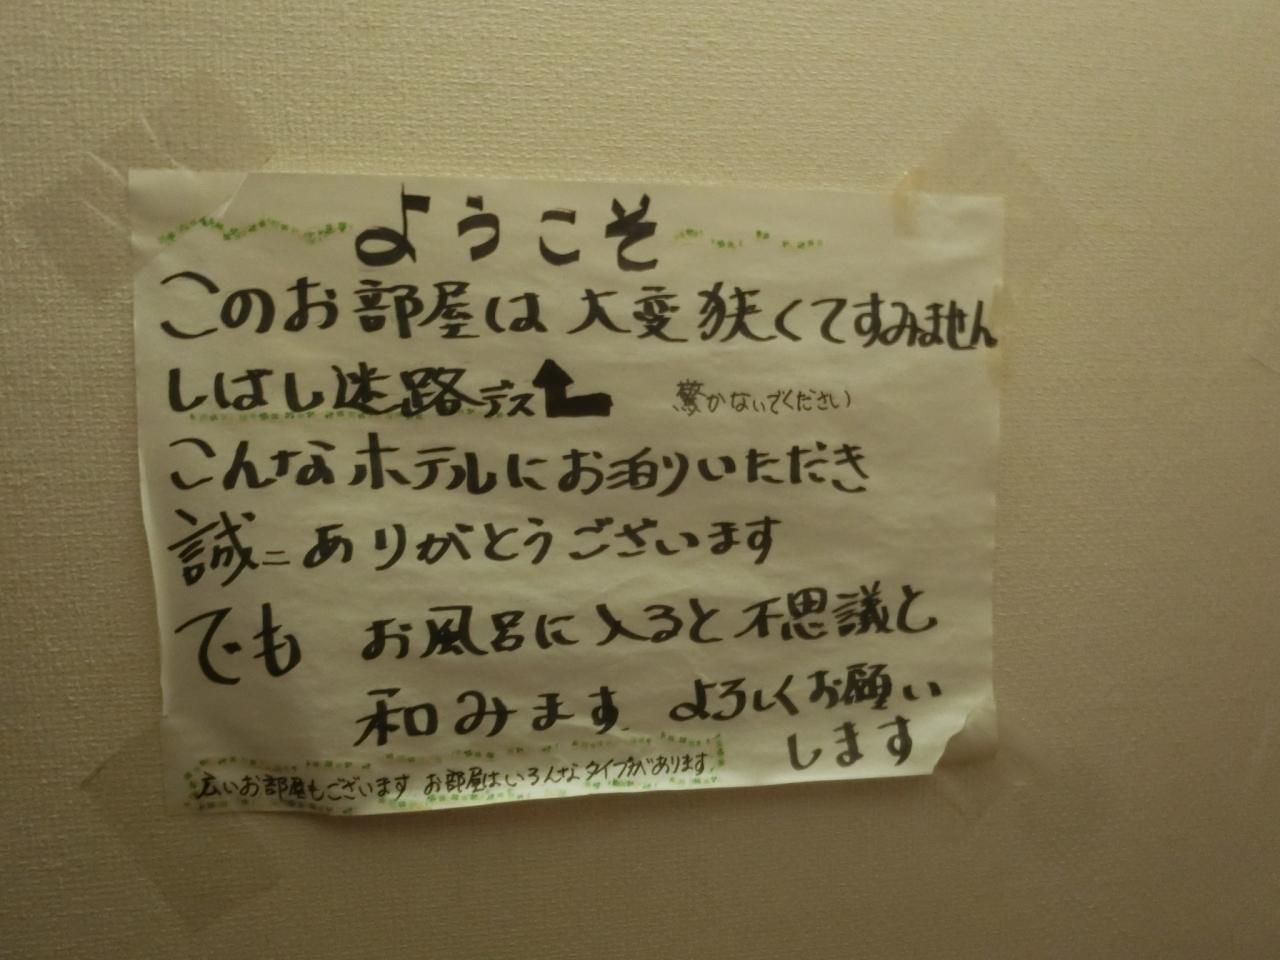 ようこそ
このお部屋は大変狭くてすみません
しばし迷路デス 驚かないでください
こんなホテルにお泊りいただき
誠ニありがとうございます
でも お風呂に入ると不思議と
和みます よろしくお願い
します
広いお部屋もございます お部屋はいろんなタイプがあります